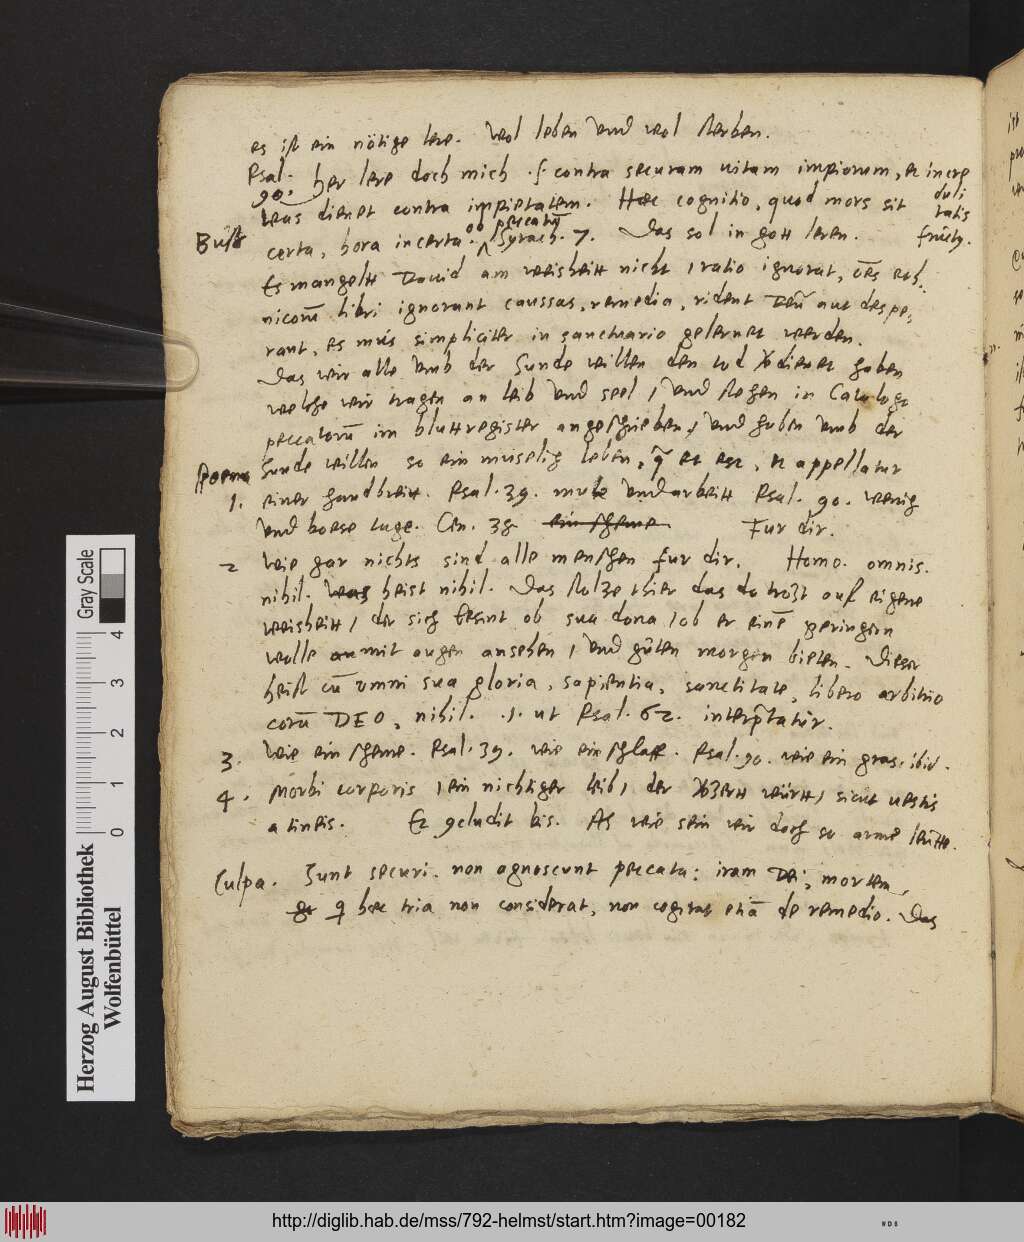 es ist ein nötige lere. Wol leben und wol sterben.
Psal. 90. her lere doch mich .s. contra securam uitam impiorum, et incre
duli
tatis
fruct9.
was dienet contra impietatem. Haec cognitio, quod mors sit
Busß
certa, hora incerta. ob peccatū Syrach. 7. Das sol in gott leren.
Es mangelt Dauid am weisheitt nicht, ratio ignorat, oēs eth
nicorū libri ignorant caussas, remedia, rident Deū aut despe,
rant, es mus simpliciter in sanctuario gelernet werden.
Das wir alle umb der Sunde willen den tod verdienet haben
welche wir tragen an leib und seel, und stehen in Catalogo
peccatorū im blutt register angeschrieben, und haben umb der
Poena
Sunde willen so ein muselig leben, et est, et appellatur
1. einer handbreitt. Psal. 39. muhe und arbeitt Psal. 90. wenig
und boese tage. Gen. 38 ein scheme Fur dir.
2 Wie gar nichts sind alle menschen fur dir. Homo. omnis.
nihil. Was heist nihil. Das stolze thier das do trozt auf eigene
weisheitt, der sich besint ob sua dona, ob er einē geringern
wolle mit augen ansehen, und guten morgen bieten. Dieser
heist cū omni sua gloria, sapientia, sanctitate, libero arbitrio
corā DEO, nihil. .1. ut Psal. 62. interp̄tatur.
3. Wie ein scheme. Psal. 39. wie ein schlaff. Psal. 90. wie ein gras. ibid.
4. Morbi corporis, ein nichtiger leib, der verzert württ, sicut uestis
a tineis. Et 9cludit bis. As wie sein wir doch so arme leutte.
Culpa. Sunt securi. non agnoscunt peccatū: iram Dei, mortem,
q haec tria non considerat, non cogitat etiā de remedio. Das
Herzog August Bibliothek
Wolfenbüttel
Gray Scale
0 1 2 3 4
http://diglib.hab.de/mss/792-helmst/start.htm?image=00182